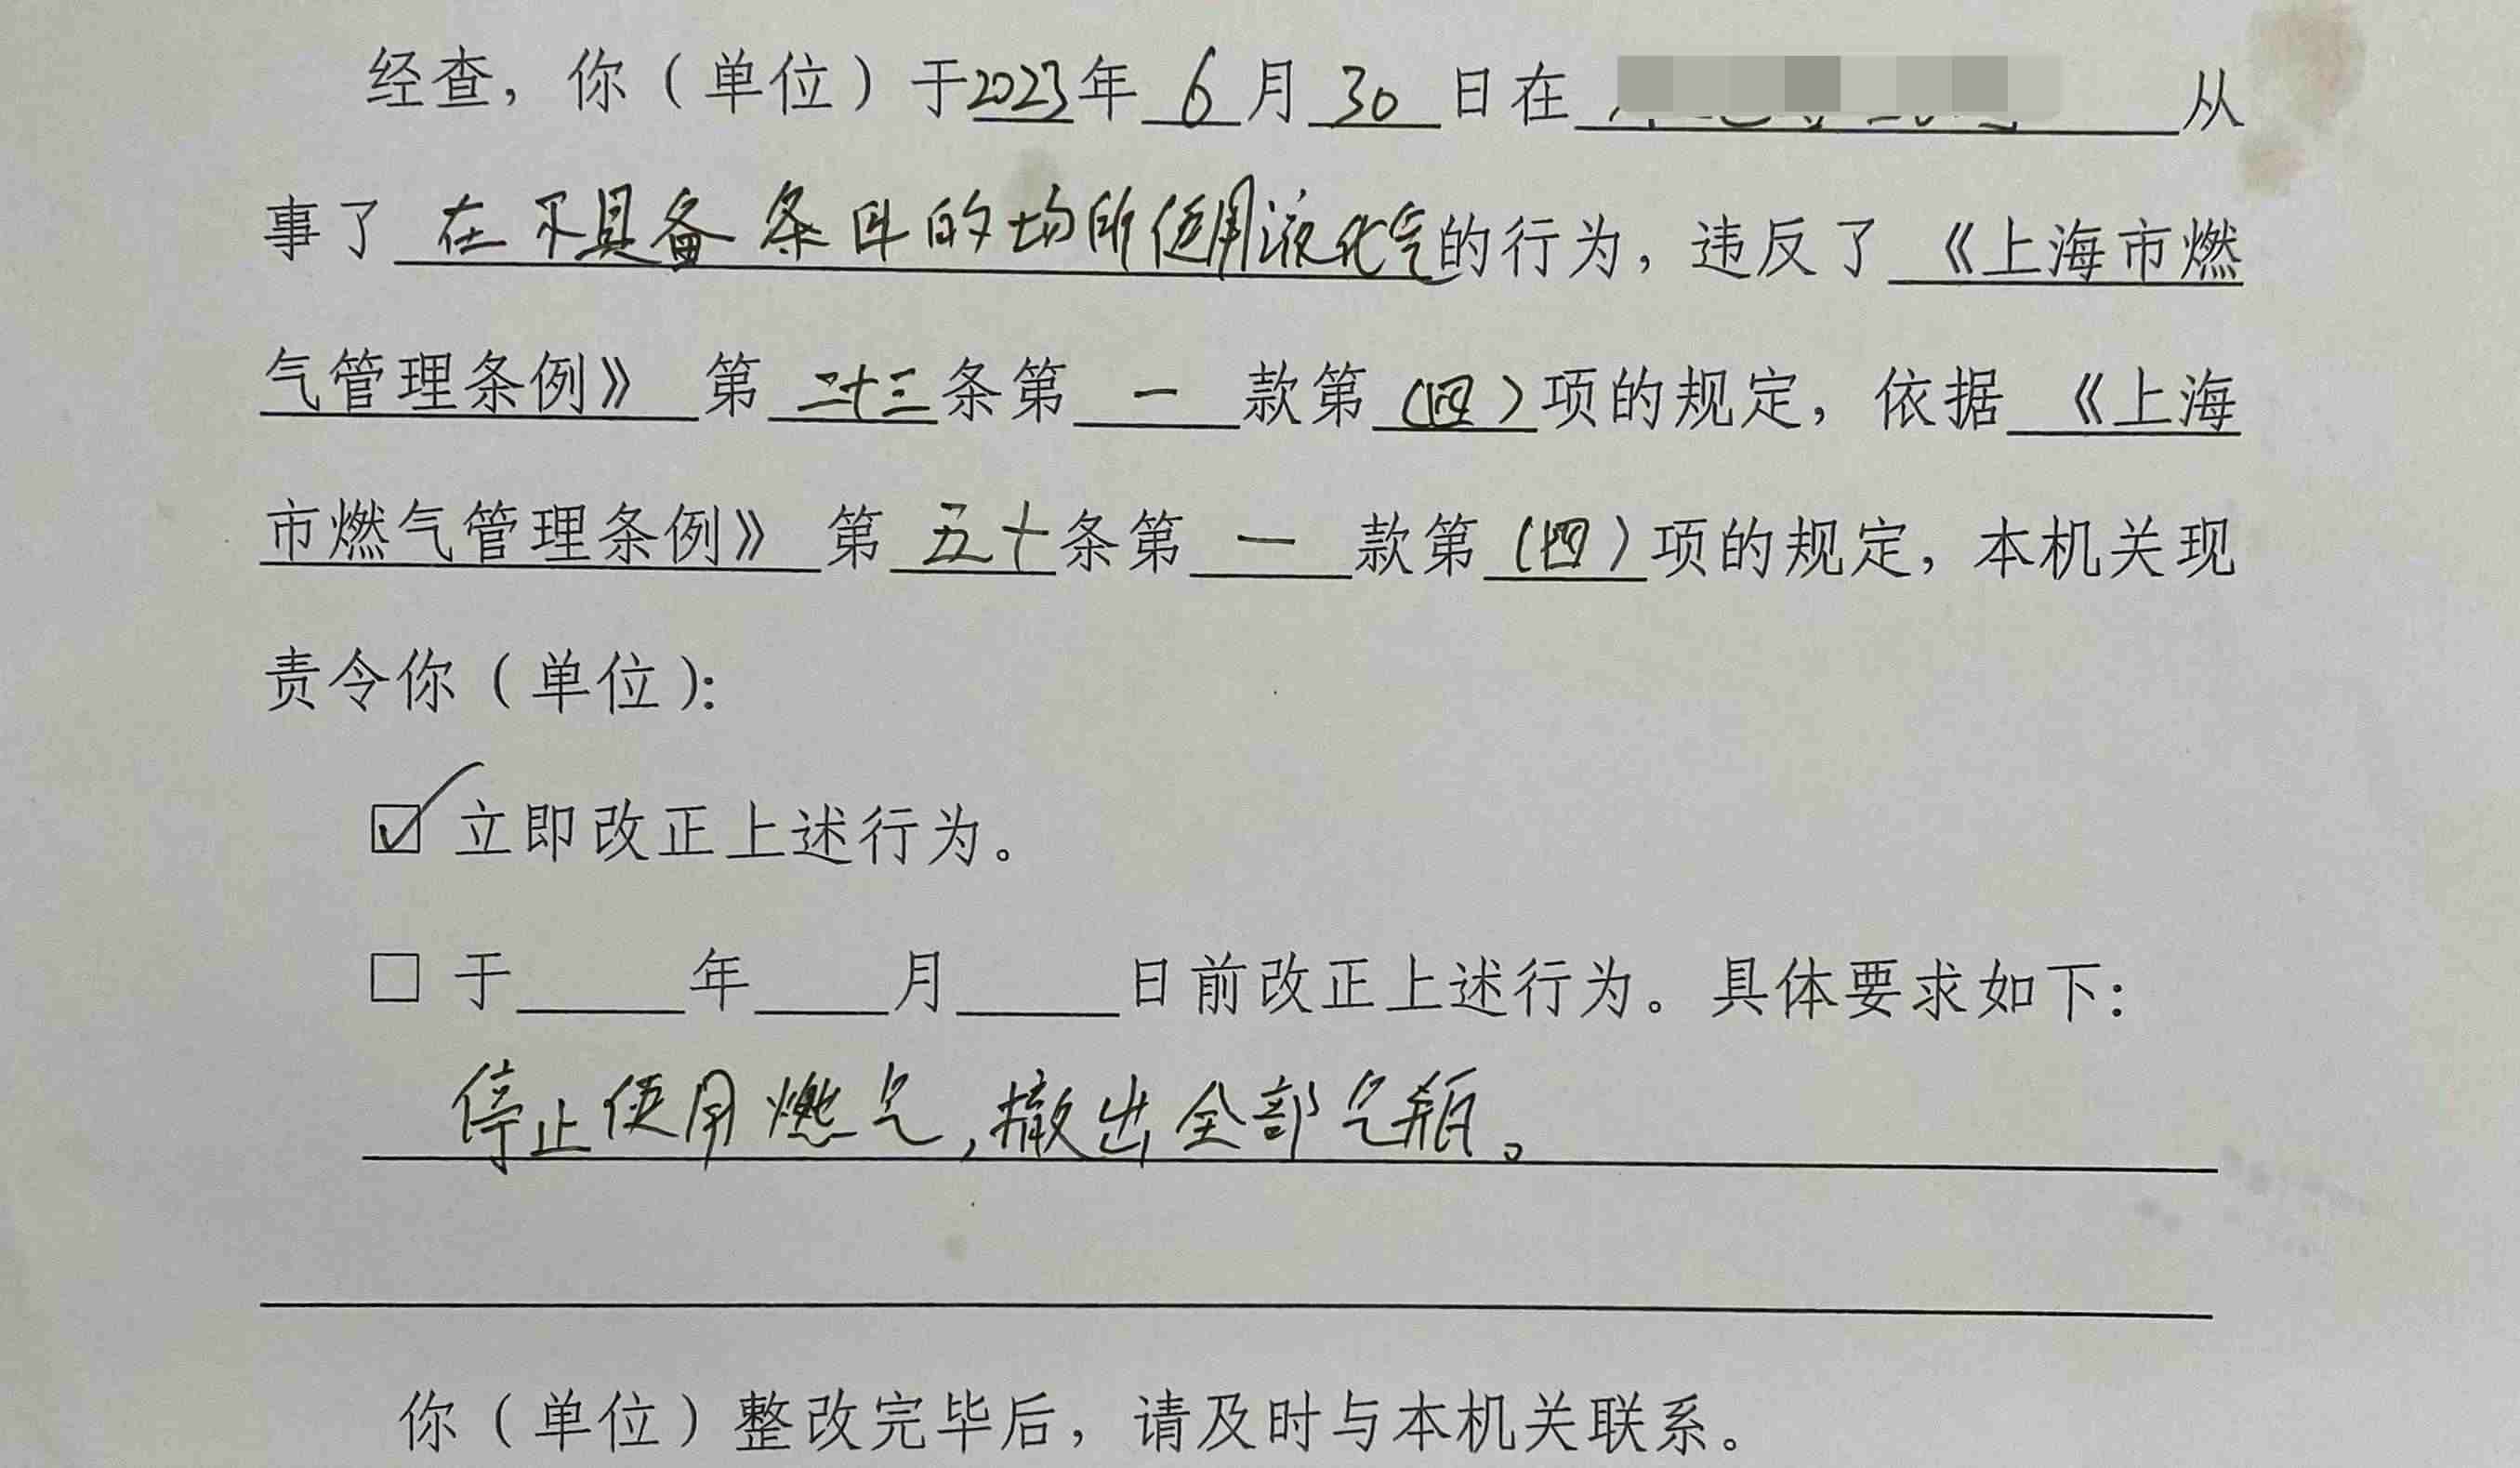 经查，你（单位）于2023年6月30日在 从
事了在不具备条件的场所使用液化气的行为，违反了《上海市燃
气管理条例》第二十三条第一款第（四）项的规定，依据《上海
市燃气管理条例》第五十条第一款第（四）项的规定，本机关现
责令你（单位）：
☑立即改正上述行为。
□于____年____月____日前改正上述行为。具体要求如下：
停止使用燃气，撤出全部气瓶。
你（单位）整改完毕后，请及时与本机关联系。